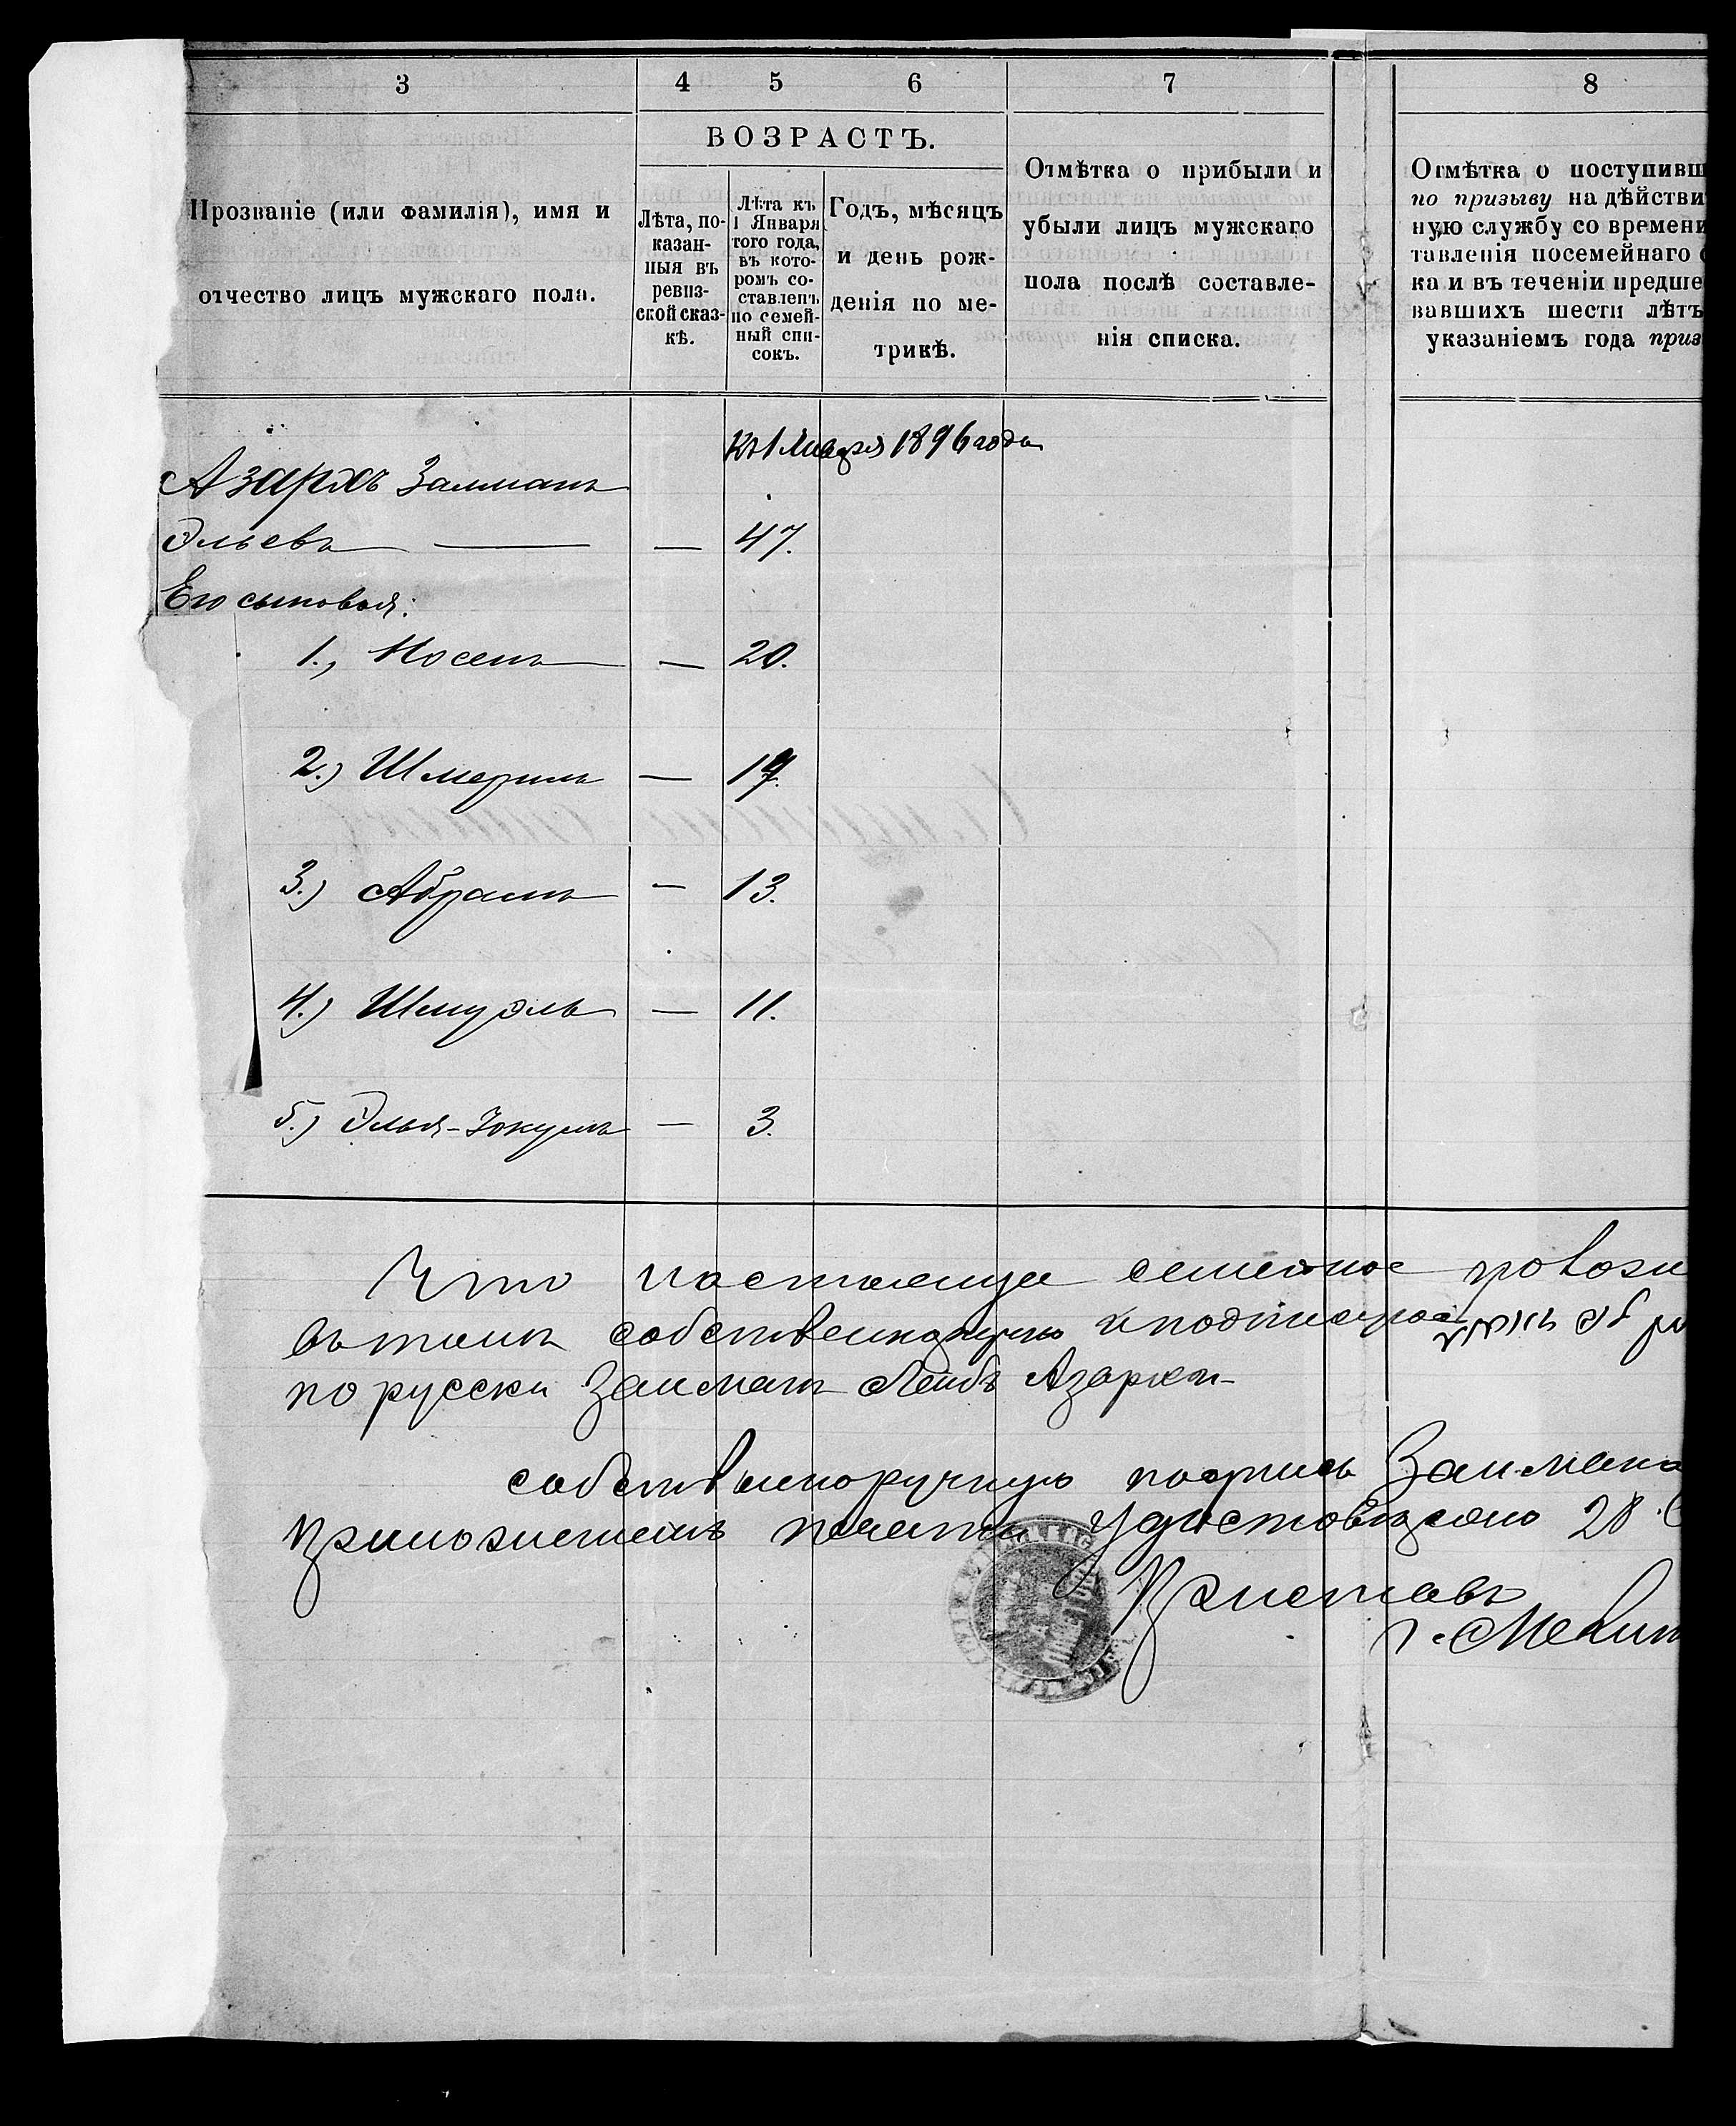 3 4 5 6 7 8
ВОЗРАСТЪ.
Прозваніе (или фамилія), имя и
отчество лицъ мужскаго пола.
Лѣта, по-
казан-
ныя въ
ревиз-
ской сказ-
кѣ.
Лѣта къ
1 Января
того года,
въ кото-
ромъ со-
ставленъ
по семей-
ный спи-
сокъ.
Годъ, мѣсяцъ
и день рож-
денія по ме-
трикѣ.
Отмѣтка о прибыли и
убыли лицъ мужскаго
пола послѣ составле-
нія списка.
Отмѣтка о поступивш
по призыву на дѣйстви
ную службу со времени
тавленія посемейнаго с
ка и въ теченіи предше
вавшихъ шести лѣтъ
указаніемъ года приз
къ 1 Января 1896 года
Азархъ Залманъ
Эльевъ — — 47.
Его сыновья:
1., Носенъ — 20.
2.) Шмерилъ — 19.
3.) Абрамъ — 13.
4.) Шмуэль — 11.
5.) Элья-Іокумъ — 3.
Что настоящее семейное
въ томъ собственноручно
по русски Залманъ Лейбъ Азархъ
собственноручную подпись Залмана
приложеніемъ печати удостовѣряю 28
Приставъ